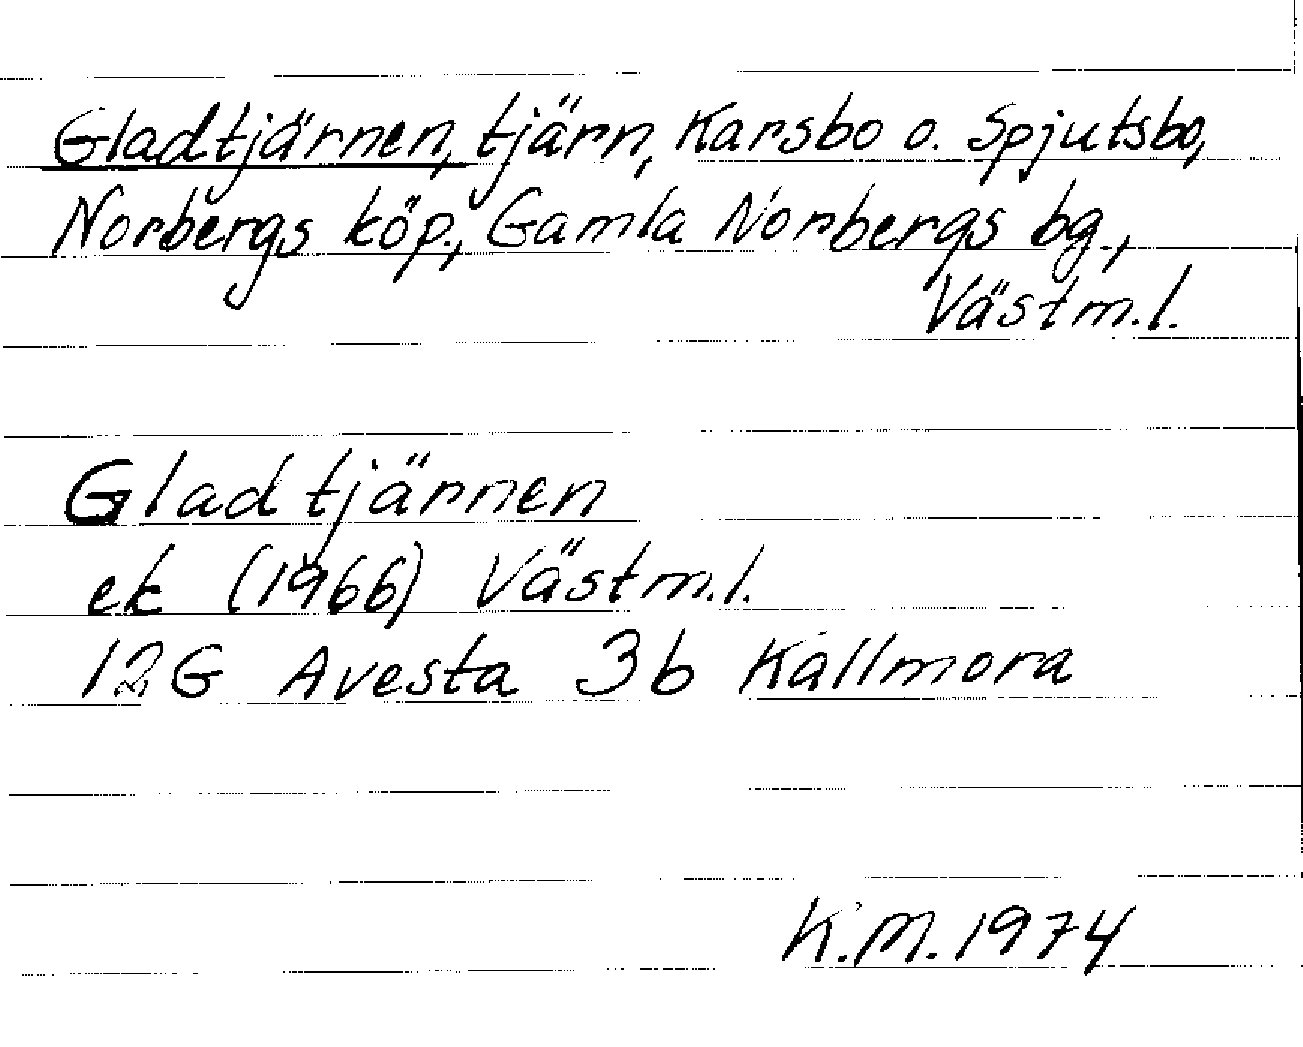 Gladtjärnen, tjärn, Karsbo o. Spjutsbo,
Norbergs köp., Gamla Norbergs bg.,
Västm.l.
Gladtjärnen
ek (1966) Västm.l.
12G Avesta 3b Kallmora
K.M. 1974